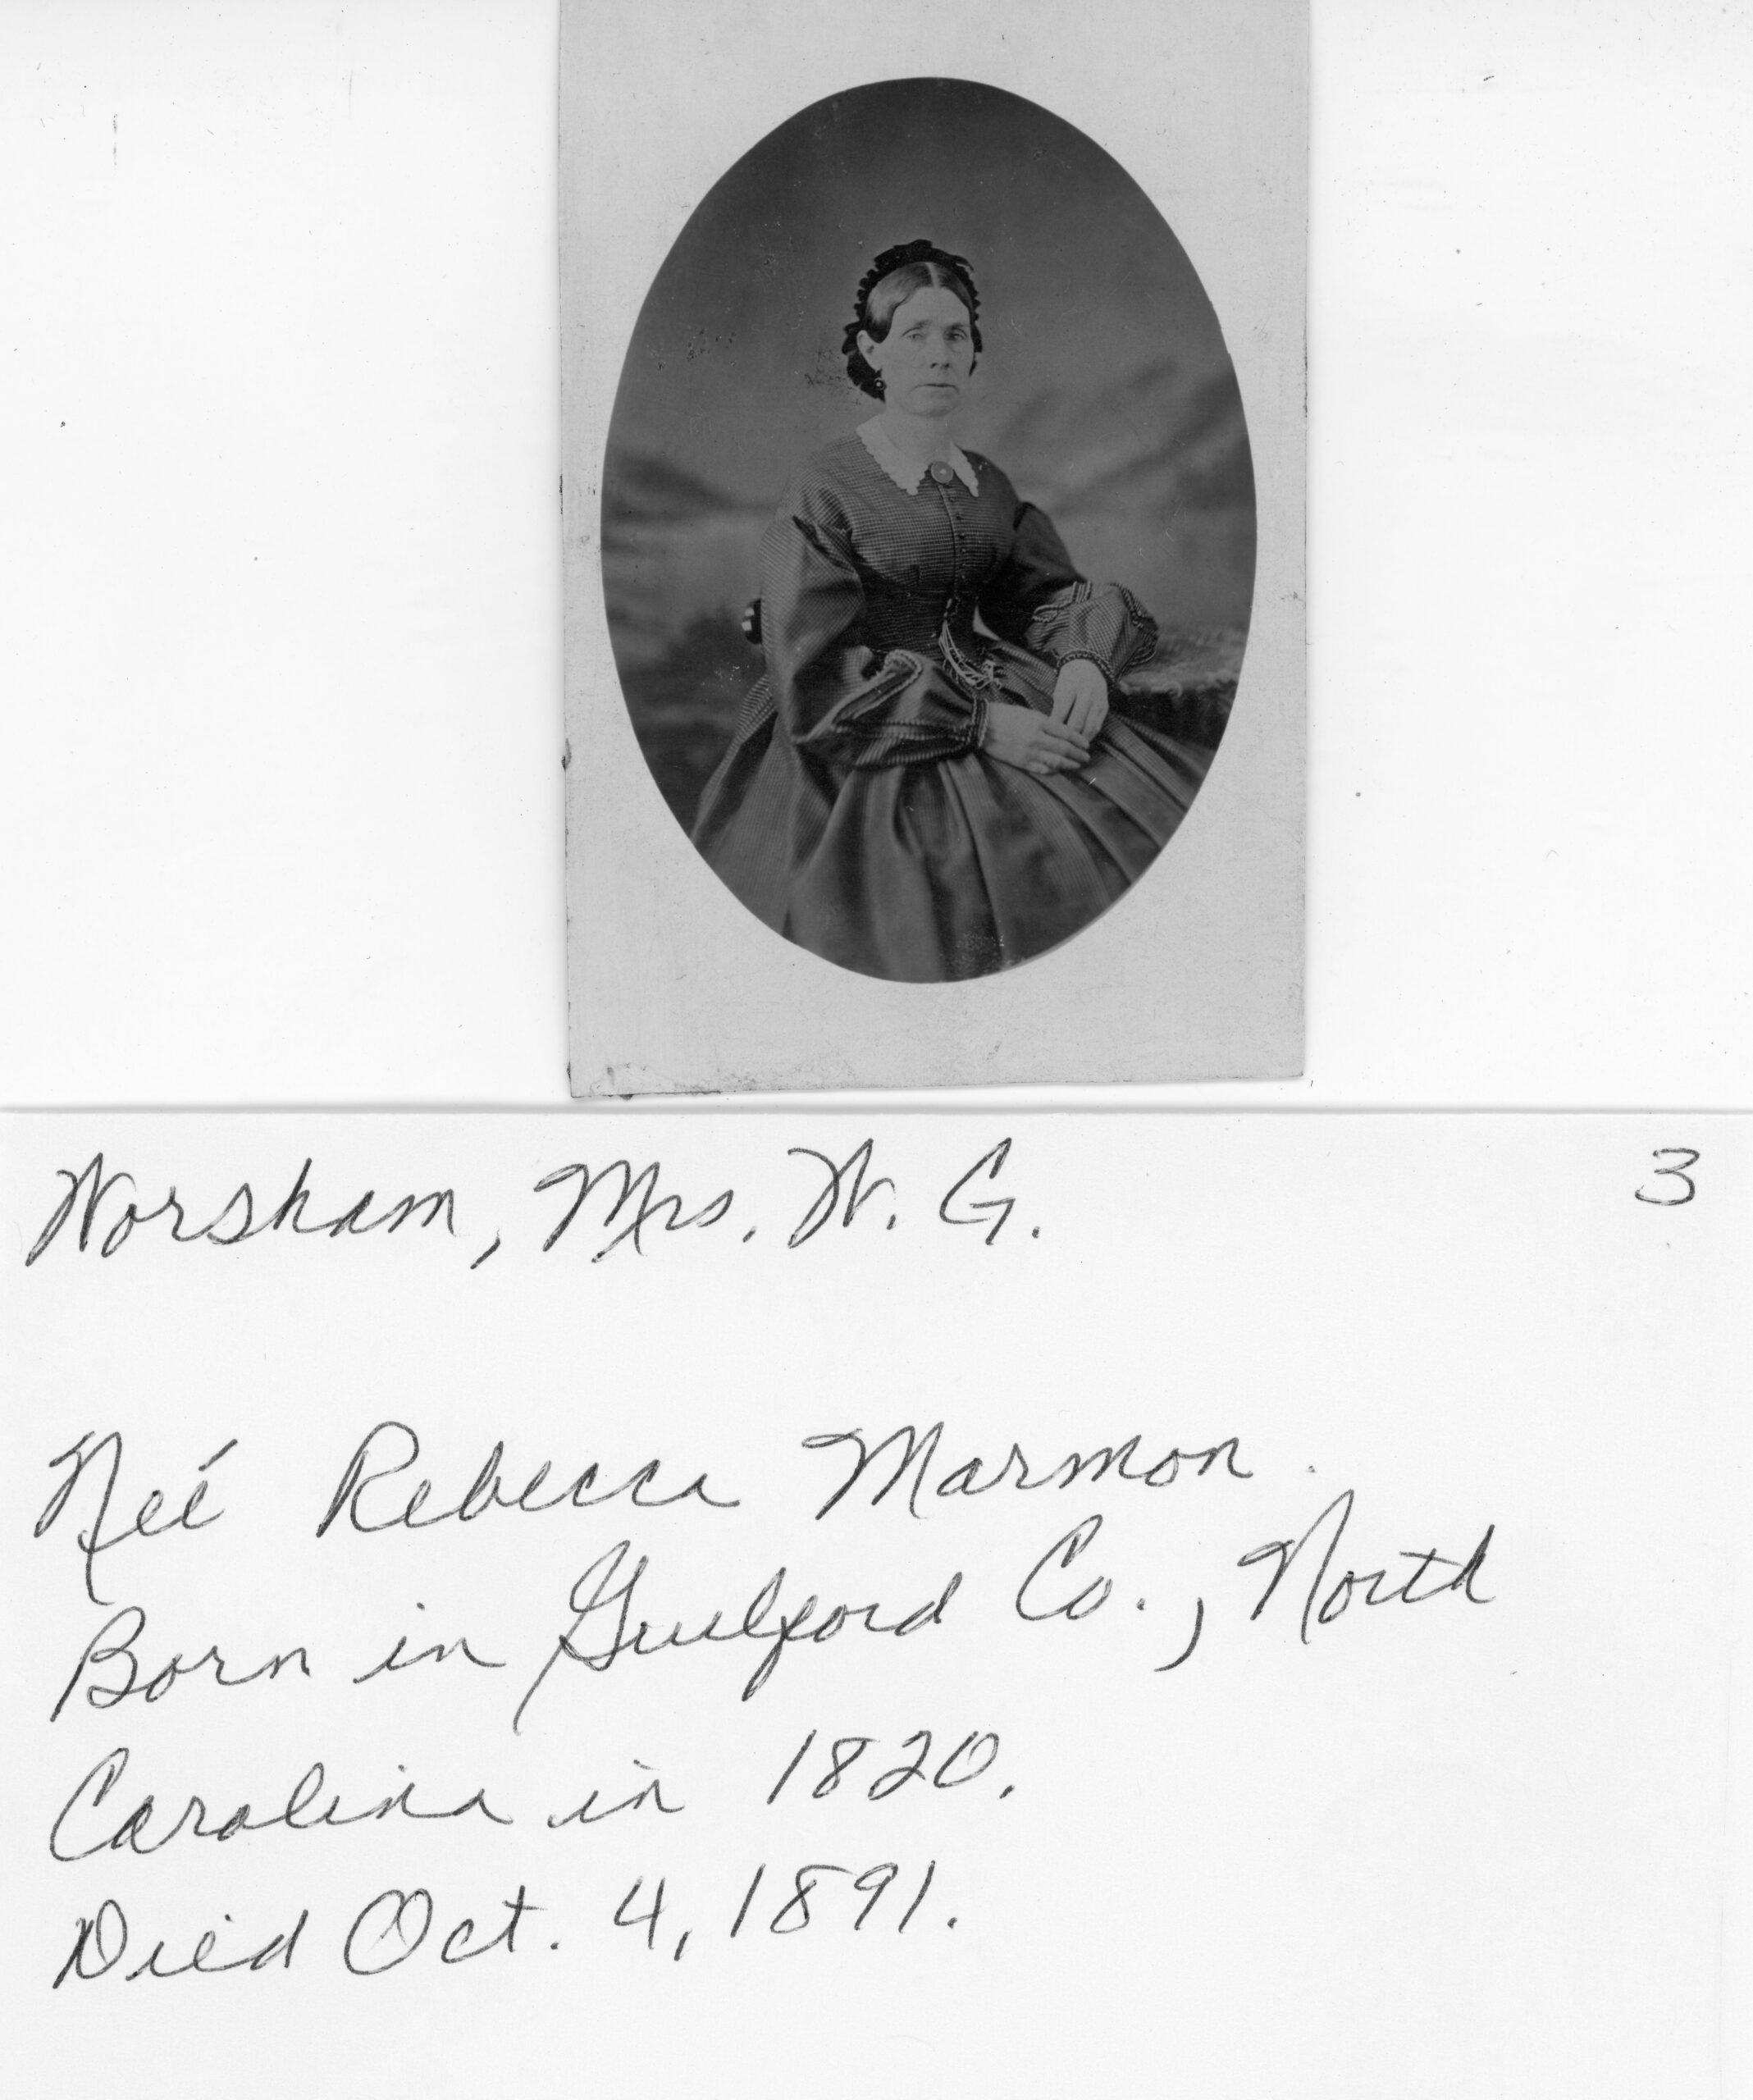 Worsham, Mrs. W. G. 3
Neé Rebecca Marmon.
Born in Guilford Co., North
Carolina in 1820.
Died Oct. 4, 1891.